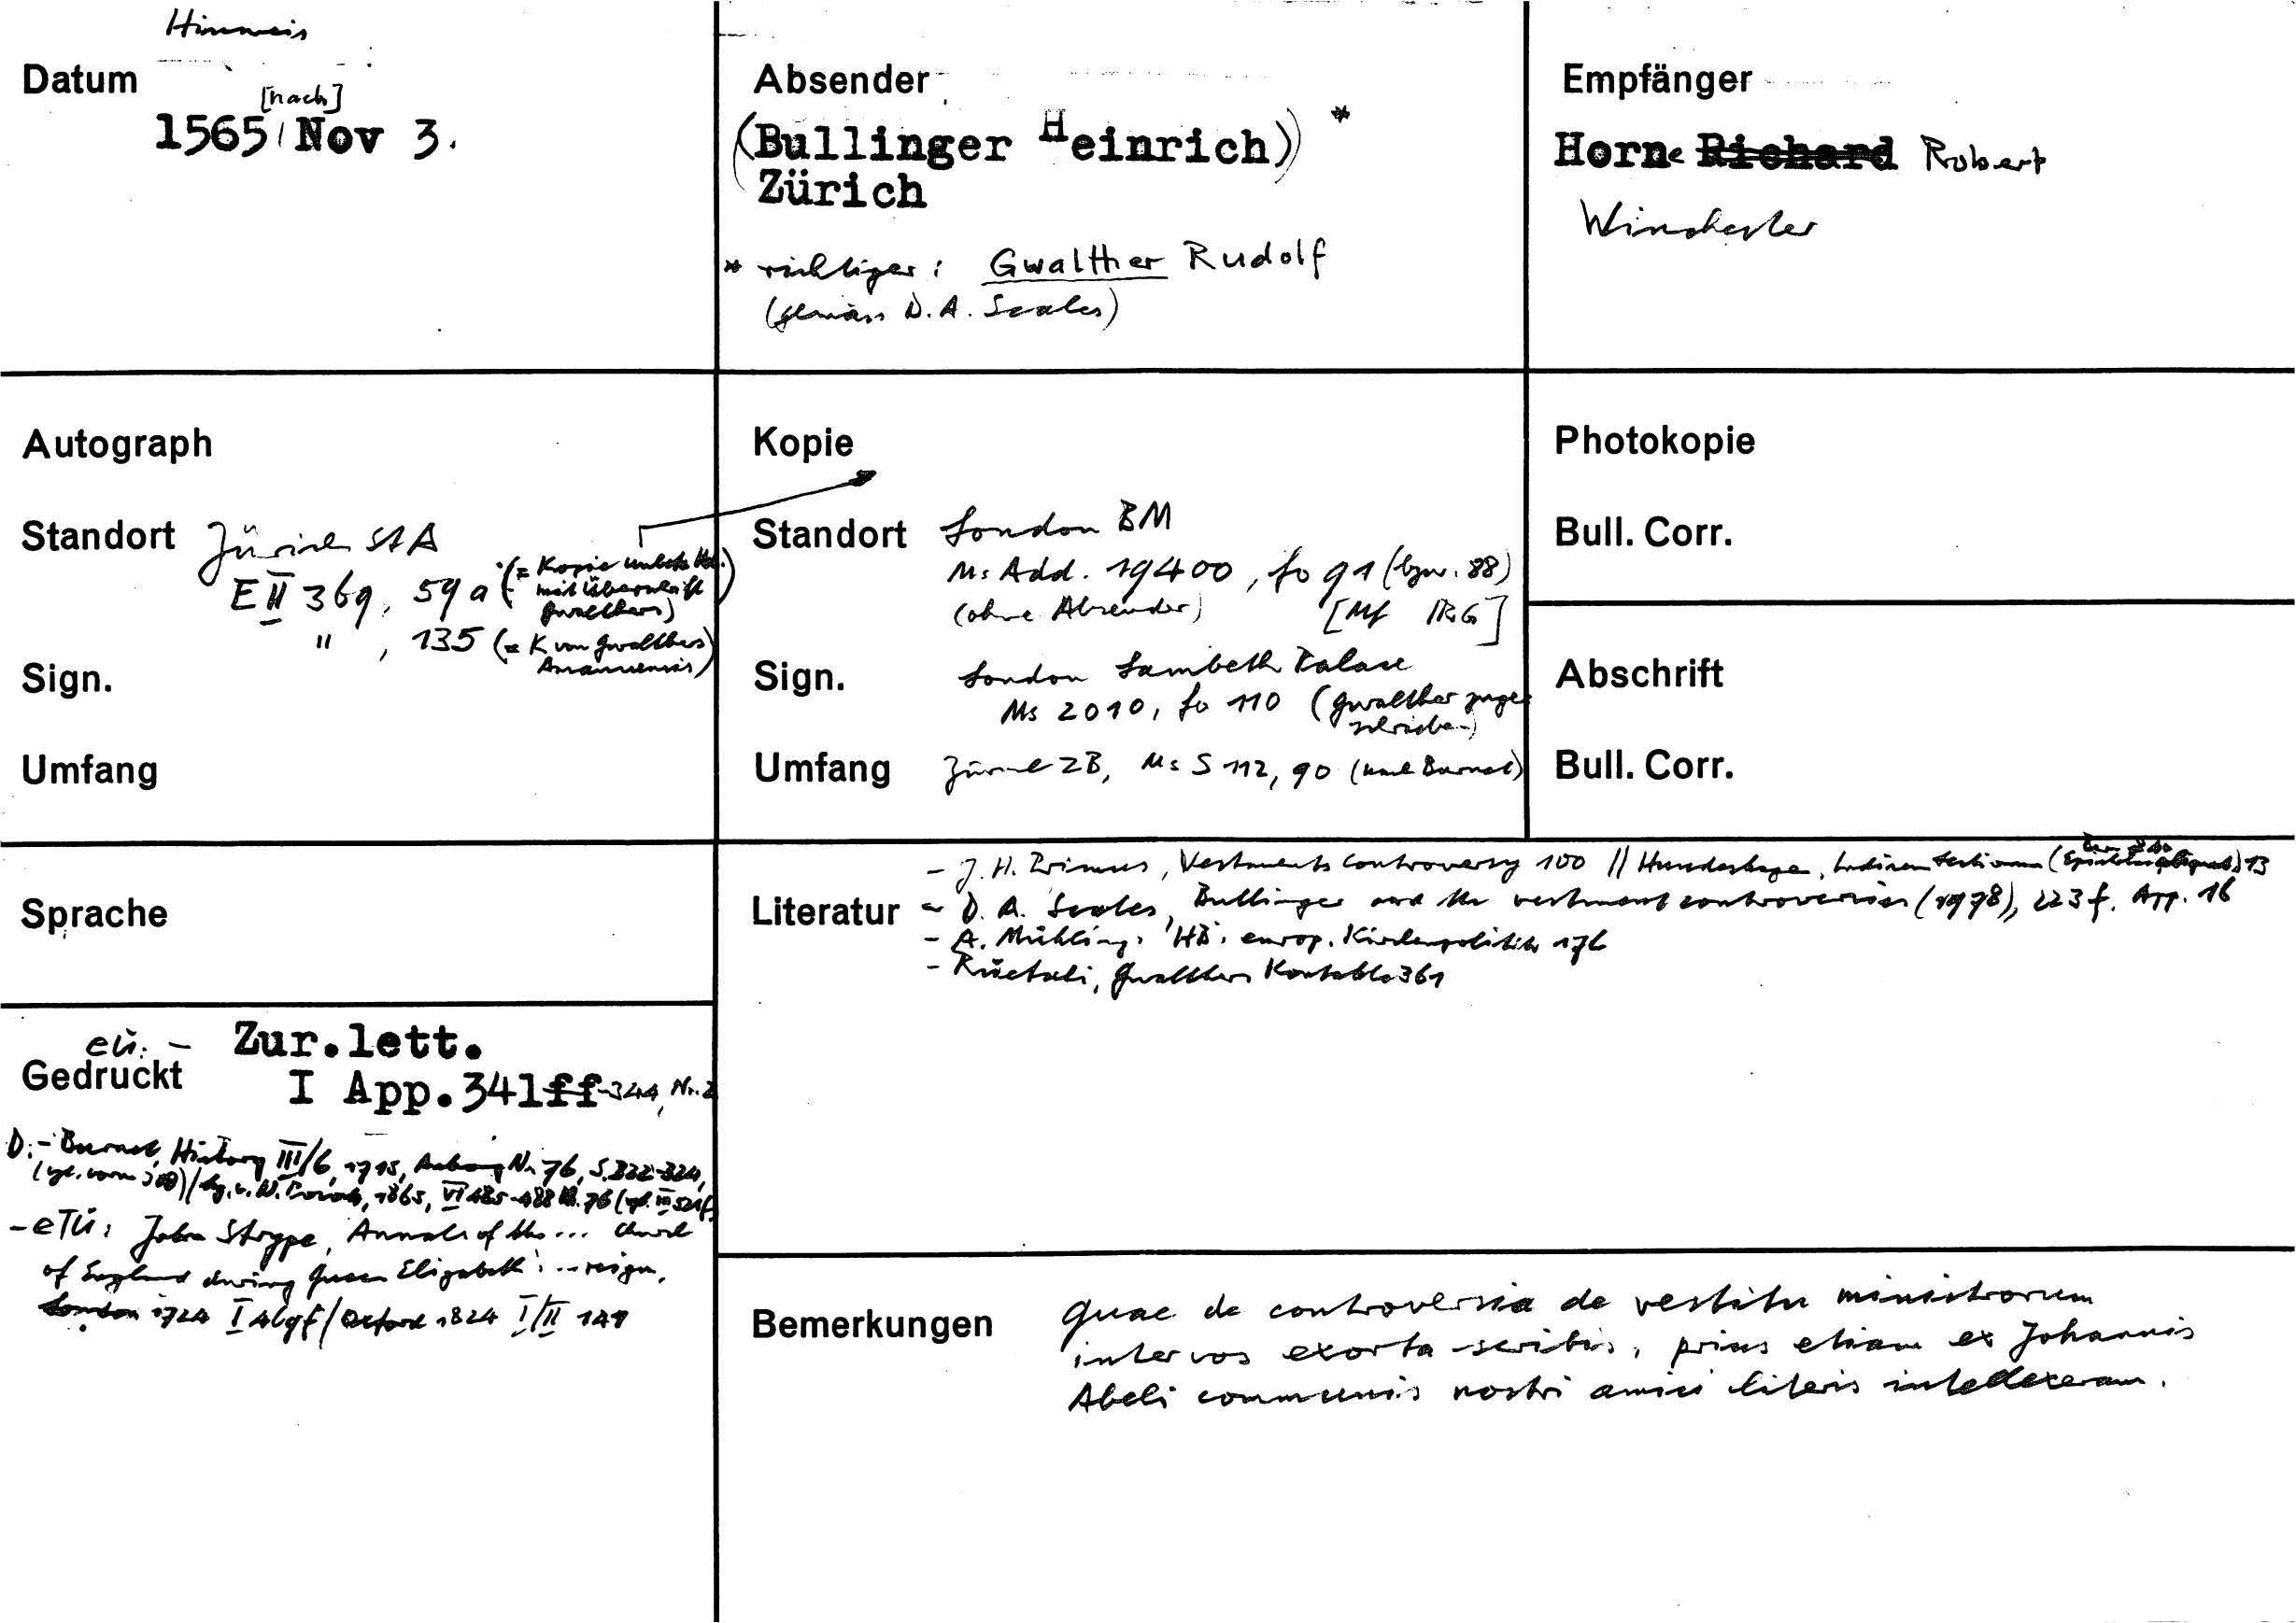 Hinweis
Datum
[nach]
1565 Nov 3.
Absender
(Bullinger Heinrich) *
Zürich
* richtiger: Gwalther Rudolf
(gemäss D. A. Scales)
Empfänger
Horne Richard Robert
Winchester
Autograph
Standort Zürich StA
E II 369, 59a (= Kopie unbek. Hd.
mit Überschrift
Gwalthers)
" , 135 (= K von Gwalthers
Amanuensis)
Sign.
Umfang
Kopie
Standort London BM
Ms Add. 19400, fo 91 (bzw. 88)
(ohne Absender) [Mf IRG]
Sign. London Lambeth Palace
Ms 2010, fo 110 (Gwalther zuge-
schrieben)
Umfang Zürich ZB, Ms S 112, 90 (nach Burnet)
Photokopie
Bull. Corr.
Abschrift
Bull. Corr.
Sprache
Literatur
- J. H. Primus, Vestments Controversy 100 // Hundeshagen, 13
- D. A. Scales, Bullinger and the vestment controversies (1978), 223f. App. 16
- A. Mühling, HB's europ. Kirchenpolitik 176
- Rüetschi, Gwalthers Kontakte 361
eü. - Zur.lett.
Gedruckt I App.341ff-344, Nr. 2
D: - Burnet, History III/6, 1715, Anhang Nr. 76, S. 322-324,
(vgl. vorn 308) / hg. v. N. Pocock, 1865, VI 485-488 Nr. 76 (vgl. III 521f.
- eTü: John Strype, Annals of the ... Church
of England during Queen Elizabeth's ... reign,
London 1724 I 469f / Oxford 1824 I/II 141
Bemerkungen
Quae de controversia de vestitu ministrorum
inter vos exorta scribis, prius etiam ex Johannis
Abeli communis nostri amici literis intellexeram.